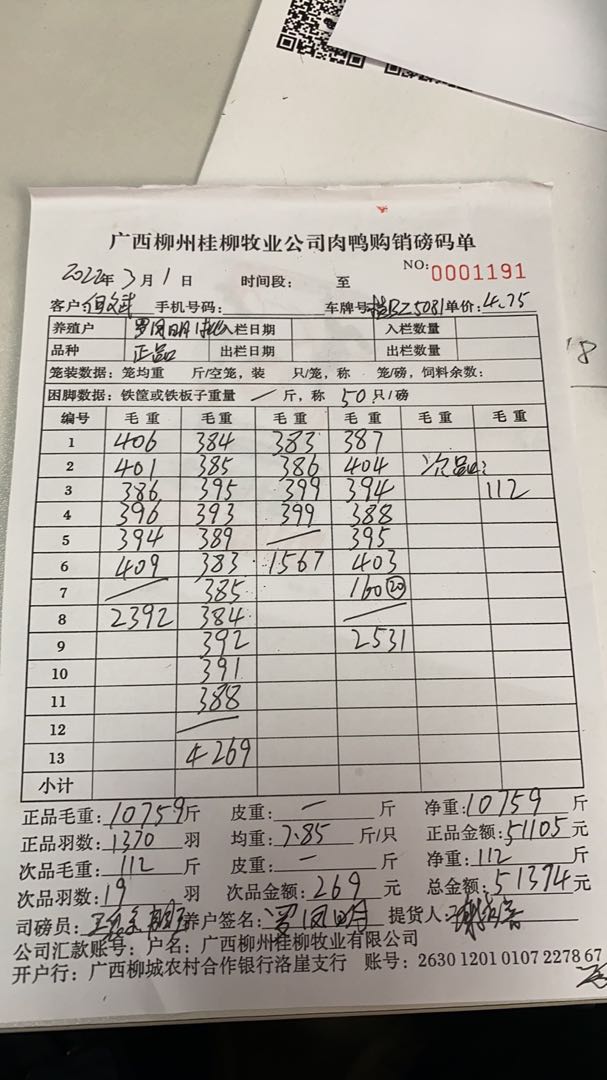 广西柳州桂柳牧业公司肉鸭购销磅码单
NO: 0001191
2022年3月1日 时间段: 至
客户: 手机号码: 车牌号 桂BZ5081 单价: 4.75
养殖户 罗凤明 入栏日期 入栏数量
品种 正品 出栏日期 出栏数量
笼装数据: 笼均重 斤/空笼, 装 只/笼, 称 笼/磅, 饲料余数:
困脚数据: 铁筐或铁板子重量 — 斤, 称 50 只/磅
编号 毛重 毛重 毛重 毛重 毛重 毛重
1 406 384 383 387
2 401 385 386 404 次品:
3 386 395 399 394 112
4 396 393 399 388
5 394 389 — 395
6 409 383 1567 403
7 — 385 160 20
8 2392 384 —
9 392 2531
10 391
11 388
12 —
13 4269
小计
正品毛重: 10759 斤 皮重: — 斤 净重: 10759 斤
正品羽数: 1370 羽 均重: 7.85 斤/只 正品金额: 51105 元
次品毛重: 112 斤 皮重: — 斤 净重: 112 斤
次品羽数: 19 羽 次品金额: 269 元 总金额: 51374 元
司磅员: 养户签名: 罗凤明 提货人:
公司汇款账号: 户名: 广西柳州桂柳牧业有限公司
开户行: 广西柳城农村合作银行洛崖支行 账号: 2630 1201 0107 2278 67
8